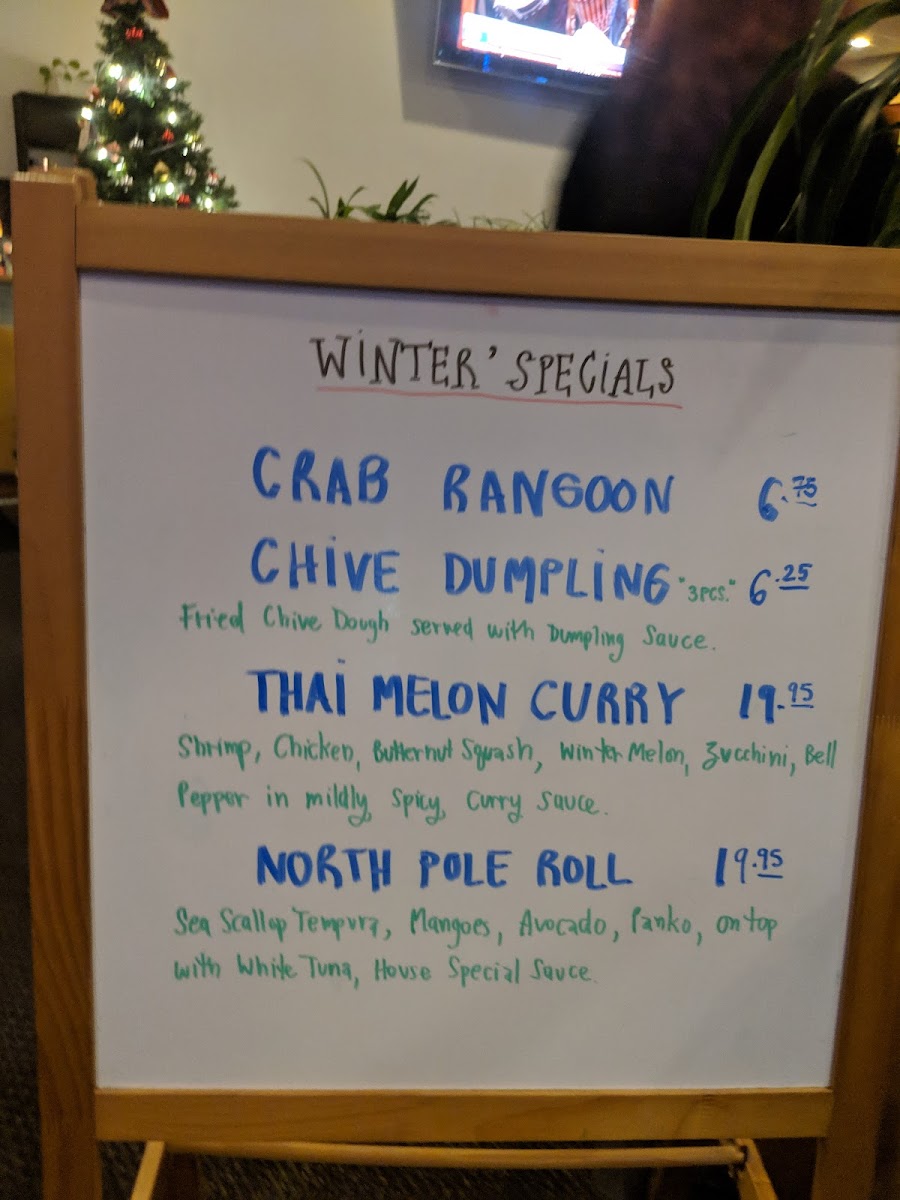 WINTER' SPECIALS
CRAB RANGOON 6.75
CHIVE DUMPLING "3PCS." 6.25
Fried Chive Dough served with Dumpling Sauce.
THAI MELON CURRY 19.95
Shrimp, Chicken, Butternut Squash, Winter Melon, Zucchini, Bell
Pepper in mildly, Spicy, Curry Sauce.
NORTH POLE ROLL 19.95
Sea Scallop Tempura, Mangoes, Avocado, Panko, on top
with White Tuna, House Special Sauce.